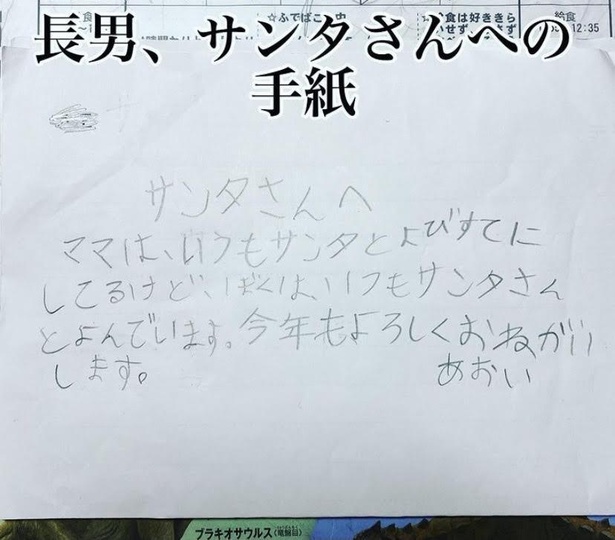 ☆ふでばこの中
給食
12:35
長男、サンタさんへの
手紙
サンタさんへ
ママは、いつもサンタとよびすてに
してるけど、ぼくは、いつもサンタさん
とよんでいます。今年もよろしくおねがい
します。
あおい
ブラキオサウルス（竜盤目）